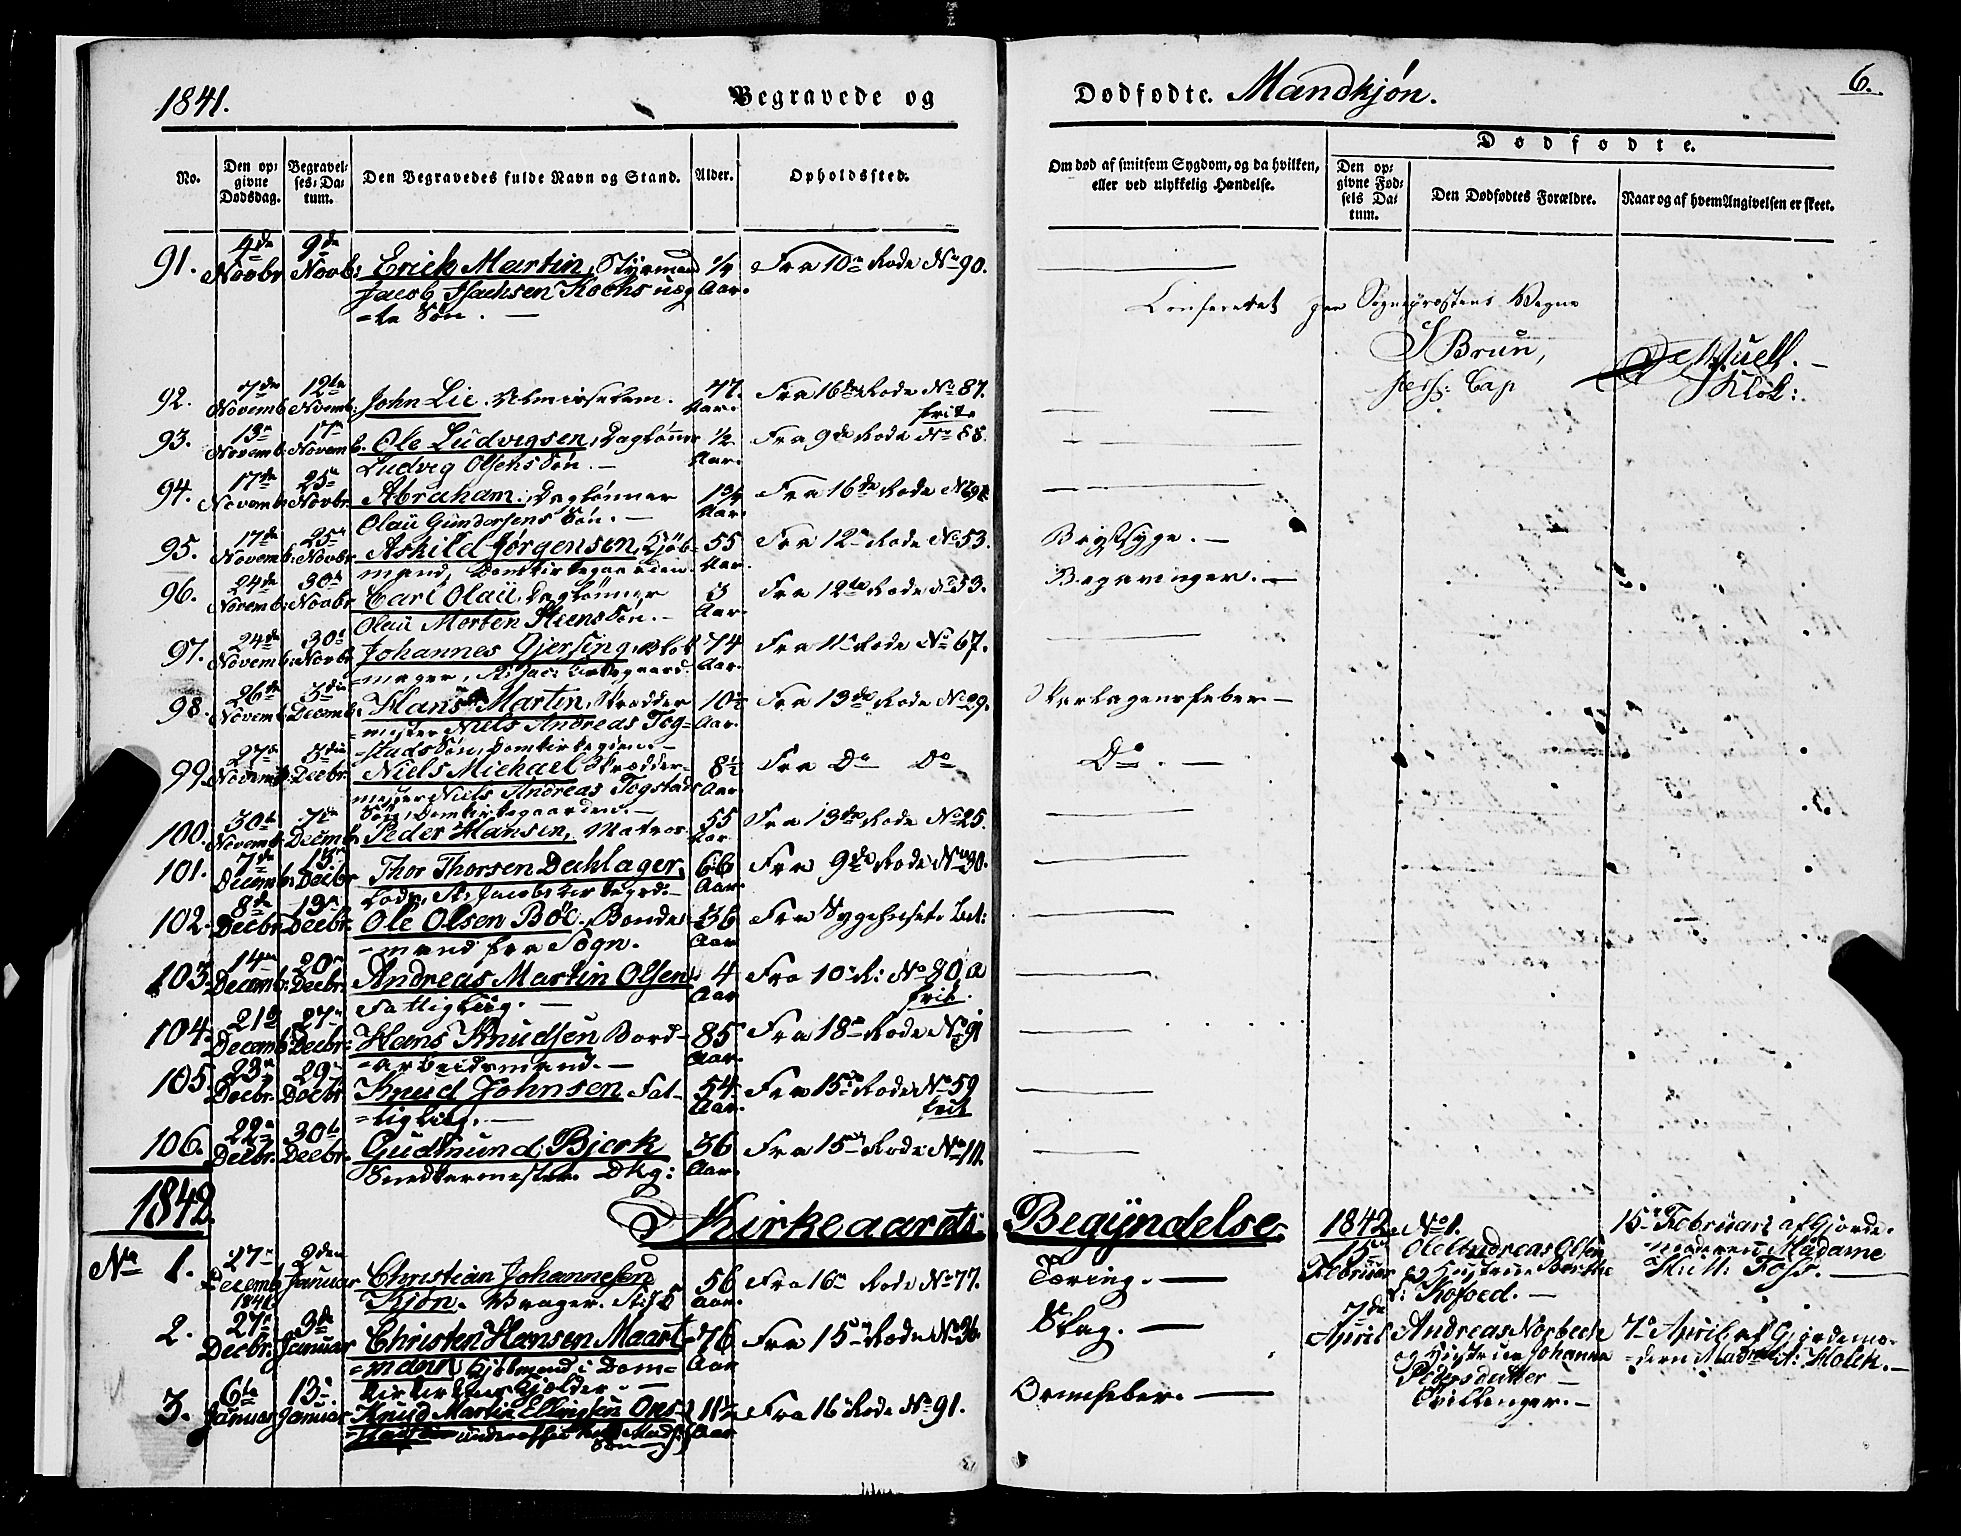 1841.
Begravede og
Dødfødte. Mandkjøn.
6.
No.
Den opgivne Dødsdag.
Begravelses-Datum.
Den Begravedes fulde Navn og Stand.
Alder.
Opholdssted.
Om død af smitsom Sygdom, og da hvilken, eller ved ulykkelig Hændelse.
Dødfødte.
Den opgivne Fødsels Datum.
Den Dødfødtes Forældre.
Naar og af hvem Angivelsen er skeet.
91. 4de Novbr 9de Novb: Erich Martin, Styrmand 1/4 Aar. Fra 10de Rode No 90.
Jacob Isachsen Kochs uæg
=te Søn. —
Confereret paa Sognepræstens Vegne
J Brun,
Cap
Klok:
92. 7de Novemb. 12te Novemb: John Lie. Almisselem. 47 Aar. Fra 16de Rode No 87.
frit
93. 13de Novemb: 17de Novemb. Ole Ludvigsen, Daglønner 1/2 Aar. Fra 9de Rode No 88.
Ludvig Olsens Søn. —
94. 17de Novemb: 25de Novbr Abraham. Daglønner 1 3/4 Aar. Fra 16de Rode
Olaii Gundersens Søn. —
95. 17de Novemb: 25de Novbr Askild Jørgensen, Kjøb- 55 Aar. Fra 12te Rode No 53. Brystsyge. —
mand, Domkirkegaarden.
96. 24de Novemb: 30te Novbr Carl Olaii, Daglønner 3 Aar. Fra 12te Rode No 53. —
Olaii Morten Steens Søn. —
97. 24de Novemb: 30te Novbr Johannes Gjersing, Blok 74 Aar. Fra 11te Rode No 67.
=mager, St. Jac: Kirkegaard.
98. 26de Novemb 3die Decemb: Hans Martin, Skrædder 10 1/2 Aar. Fra 13de Rode No 29. Skarlagensfeber —
=mester Niels Andreas Tog=
=stads Søn, Domkirkegden. —
99. 27de Novemb: 3die Decbr. Niels Michael Skrædder- 8 1/2 Aar. Fra Do Do Do. —
mester Niels Andreas Togstads
Søn, Domkirkegaarden. —
100. 30te Novemb. 7de Decemb. Peder Hansen, Matros. 55 Aar. Fra 13de Rode No 25.
101. 7de Decemb. 15de Decbr Thor Thorsen Dechlager, 66 Aar. Fra 9de Rode No 30.
Lods, St: Jacobs Kirkegrd: —
102. 8de Decbr. 13de Decbr. Ole Olsen Böe. Bonde 36 Aar Fra Sygehuset
=mand fra Sogn.
103. 14de Decemb. 20de Decbr. Andreas Martin Olsen 4 Aar Fra 10de R: No 80 a
Fattiglieg. —
frit.
104. 21de Decemb 27de Decbr. Hans Knudsen Bord- 85 Aar. Fra 18de Rode No 91
=arbeidsmand. —
105. 23de Decbr. 29de Decbr. Knud Johnsen Fat- 54 Aar. Fra 15de Rode No 59
=tiglieg. —
frit
106. 22de Decbr. 30te Decbr. Gudmund Bjerk 36 Aar. Fra 15de Rode No 10.
Snedkermester. DKg:
1842.
Kirkeaarets Begyndelse.
1842.
No 1. 27de Decemb 1841 2den Januar Christian Johannesen 56 Aar. Fra 16de Rode No 77. Tæring. —
Kjøn. Vrager.
15de Februar No 1. Ole Andreas Olsen og Hustrue Berthe Kofoed. —
15de Februar af Gjorde-
=moderen Madame
—
2. 27de Decbr. 3de Januar Christen Hansen Maart- 76 Aar Fra 15de Rode No 36. Slag. —
=mann Kjøbmand i Dom=
7de April Andreas Norbech og Hustrue Johanna Pedersdatter — Tvillinger. —
7de April af Gjordemo-
=deren Holck. —
3. 6te Januar 13de Januar Knud Martin Ellingsen 11 1/2 Aar Fra 16de Rode No 91. —